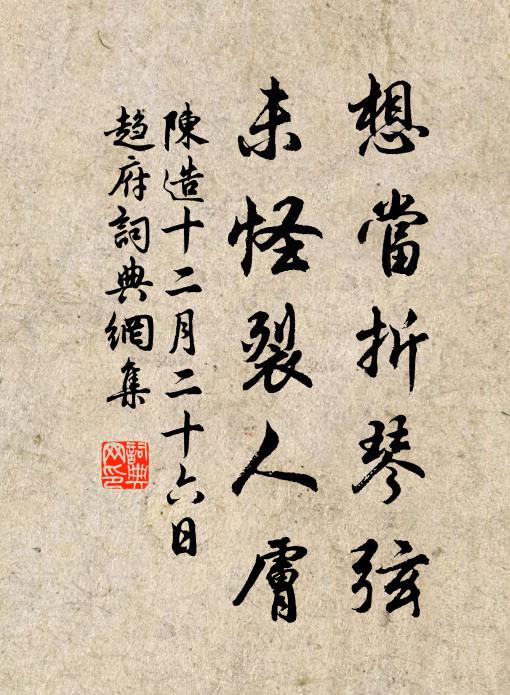 想當折琴弦
未怪裂人膚
陳造十二月二十六日
趙府詞典網集
詞典网印